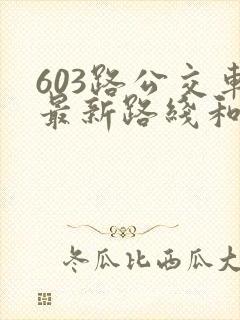 603路公交车
最新路线和
冬瓜比西瓜大